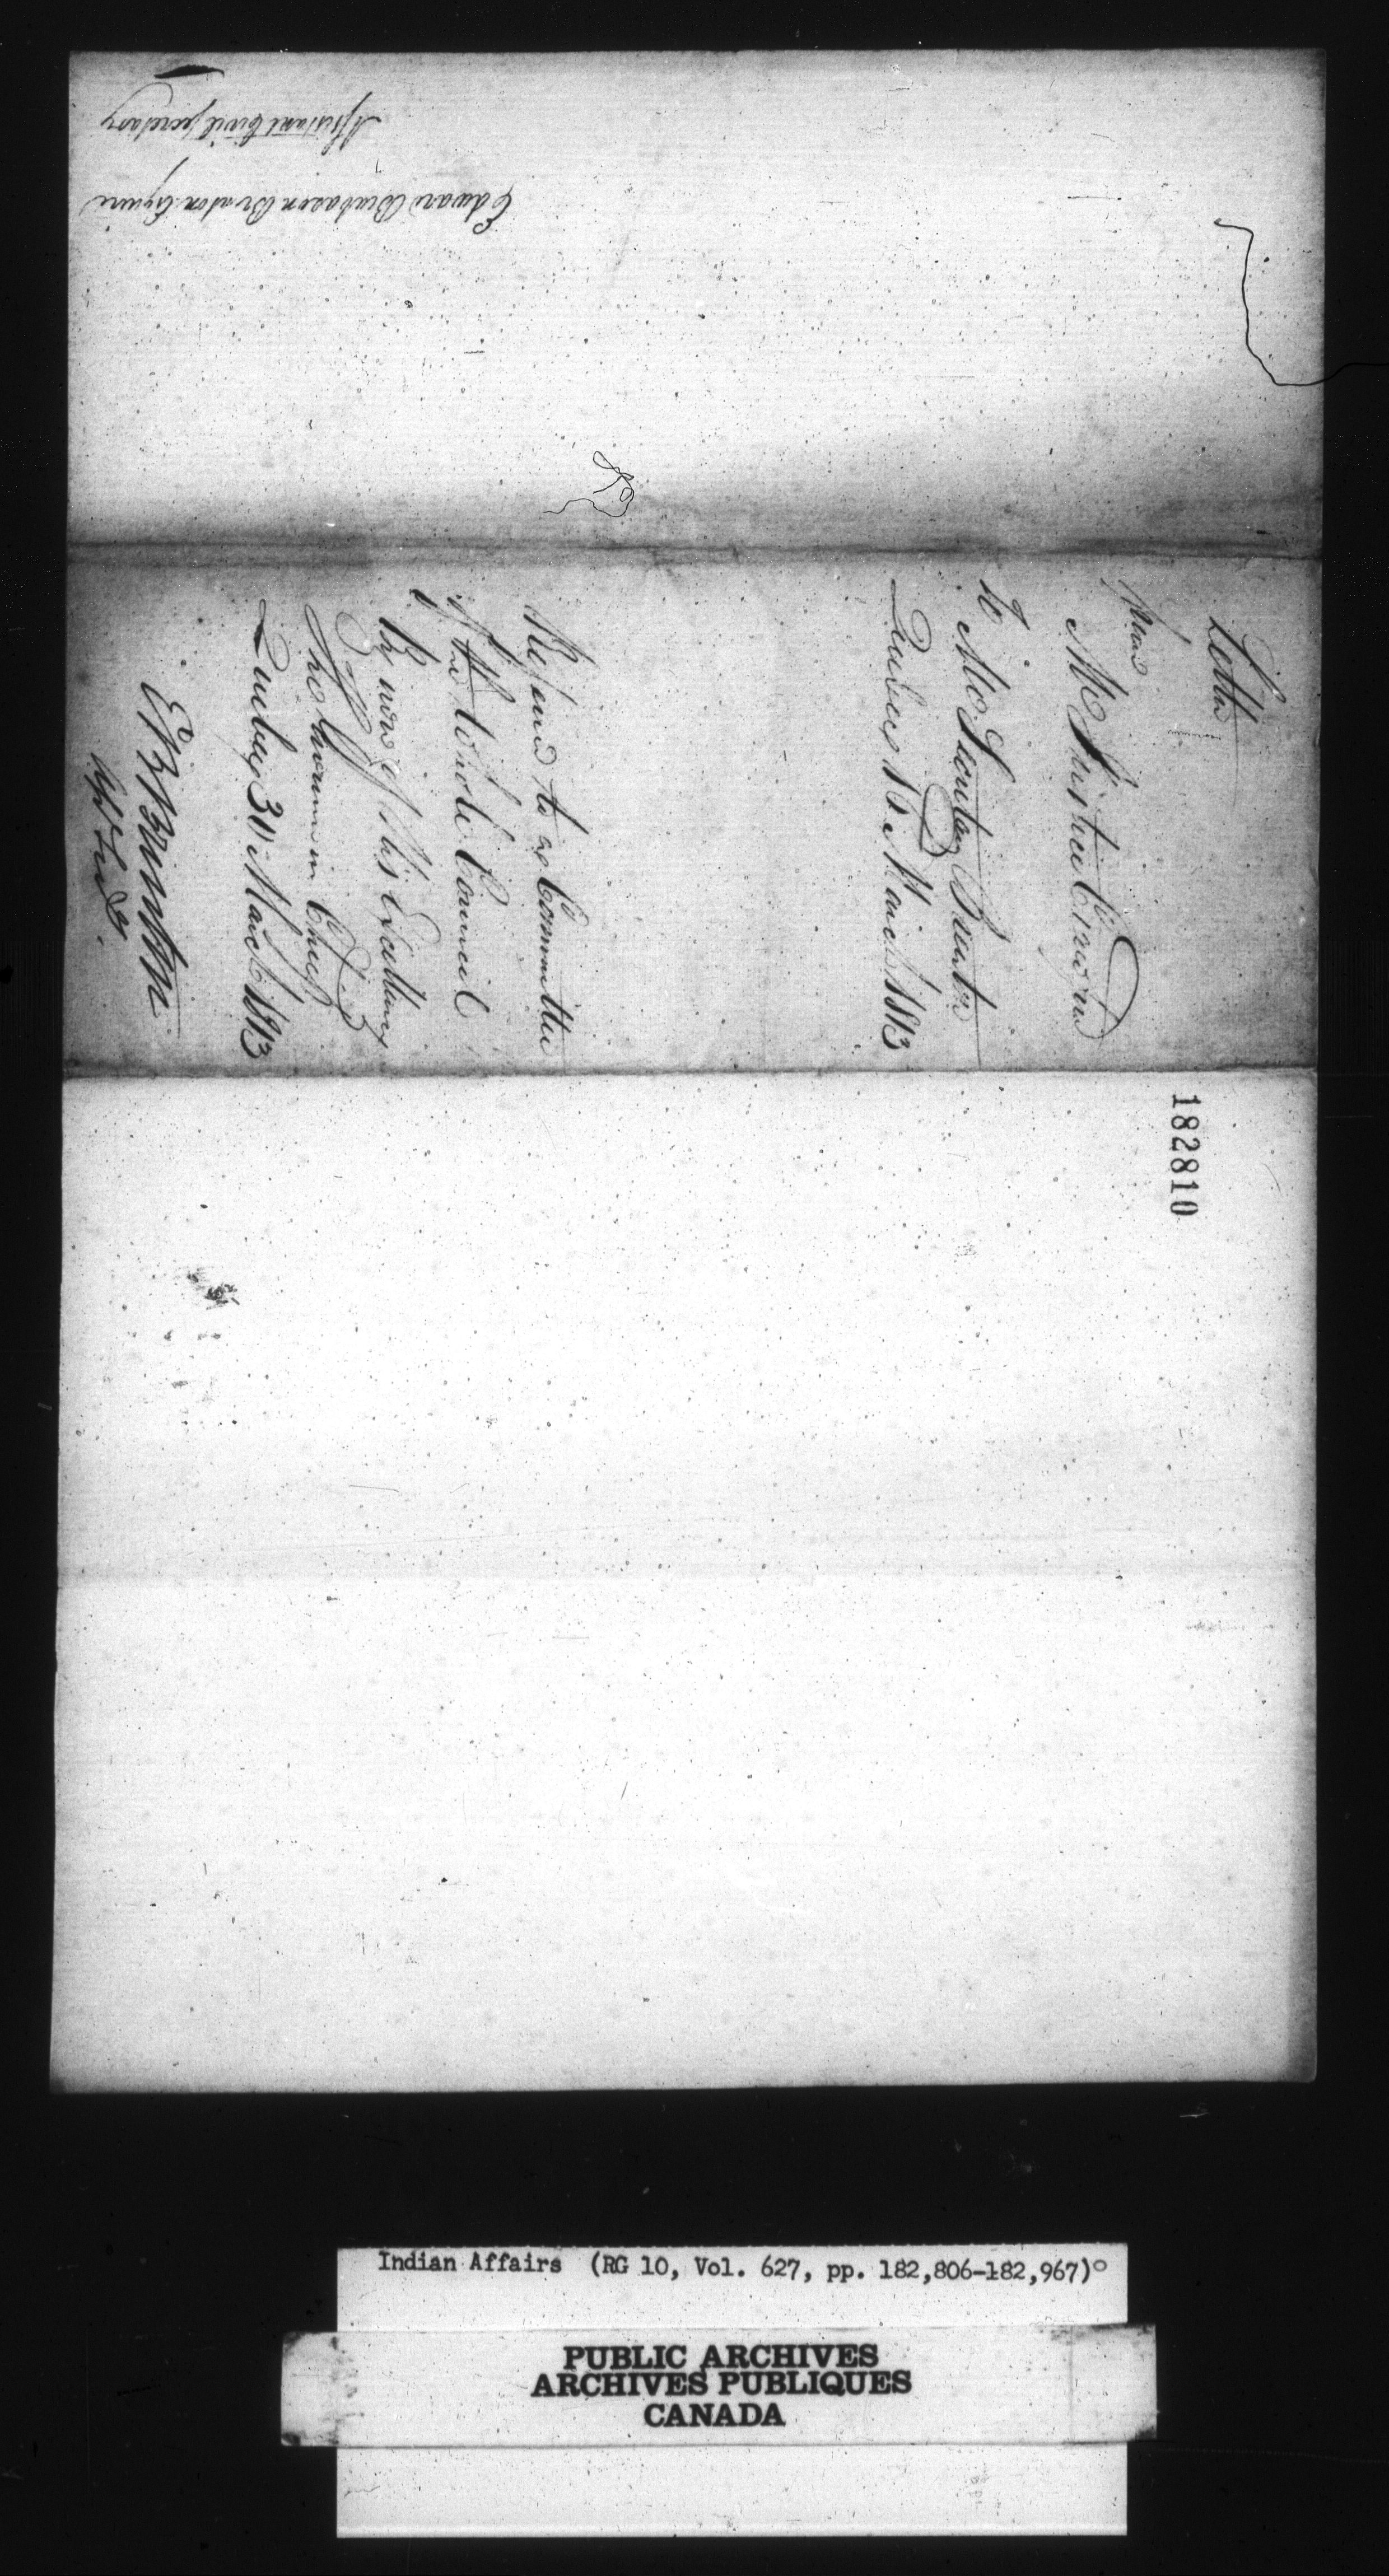 Edward Brabazon Brenton Esquire
Assistant Civil Secretary
Letter
from
Mr Justice
to Mr Secretary Brenton
Quebec 16 March 1813
Referred to a Committee
of the whole Council
By order of his Excellency
The Governor in Chief
Quebec 30 March 1813
E B Brenton
182810
Indian Affairs (RG 10, Vol. 627, pp. 182,806-182,967)
PUBLIC ARCHIVES
ARCHIVES PUBLIQUES
CANADA